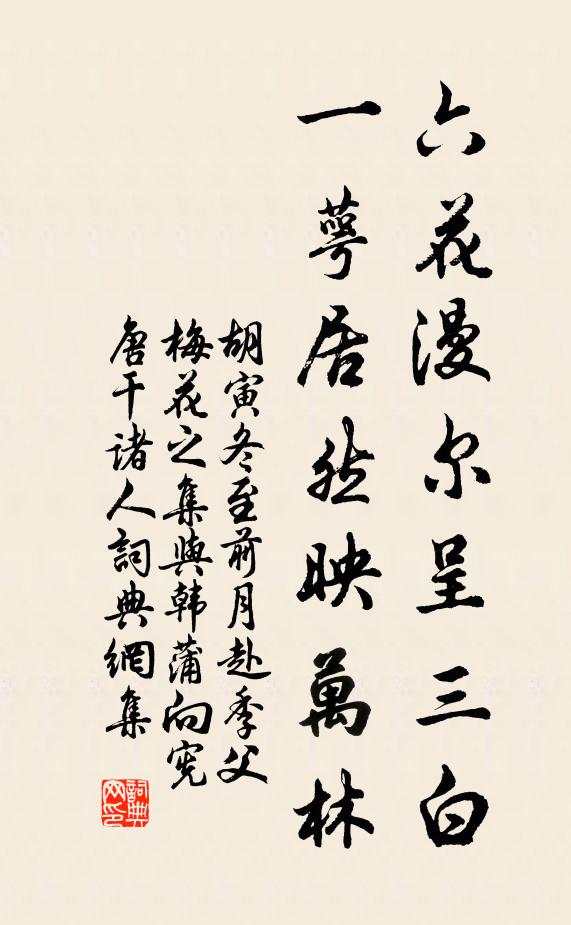 六花漫尔呈三白
一萼居然映萬林
胡寅冬至前月赴季父
梅花之集與韩蒲向宪
唐干诸人詞典網集
詞典網印